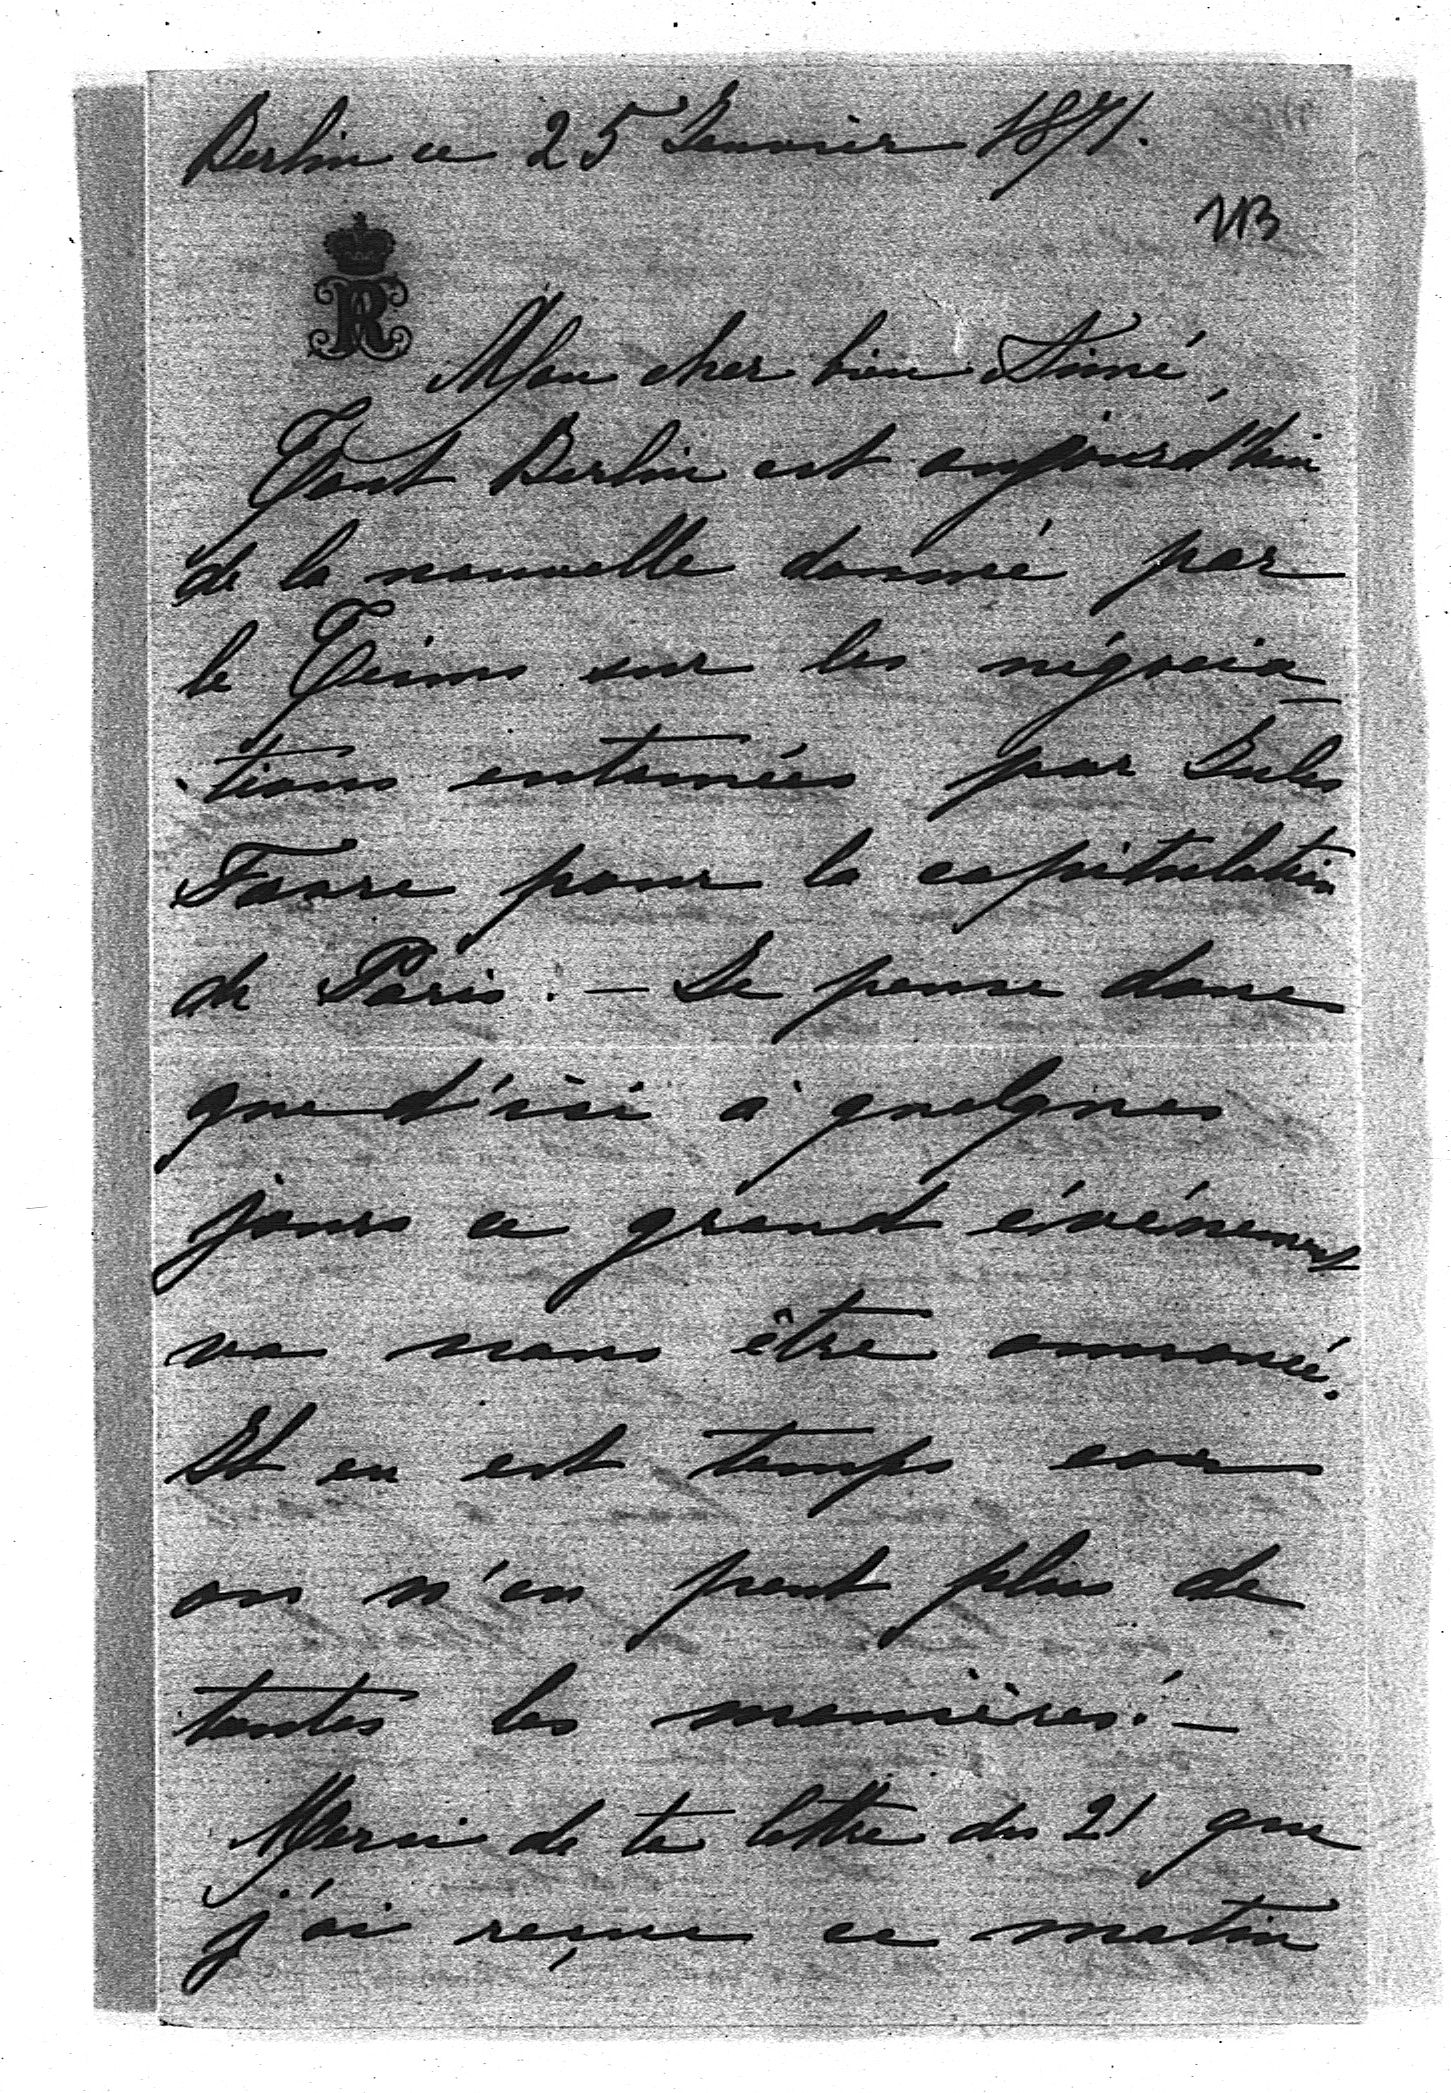 Berlin ce 25 Janvier 1871.
NB
R
Mon cher bien Aimé,
Tout Berlin est aujourd'hui
de la nouvelle donné par
le Teims sur les négocia-
tions entamées par Jules
Favre pour la capitulation
de Paris. — Je pense donc
que d'ici à quelques
jours ce grand événement
va nous être annoncé.
Et en est temps car
on n'en peut plus de
toutes les manières! —
Merci de ta lettre du 21 que
j'ai reçue ce matin